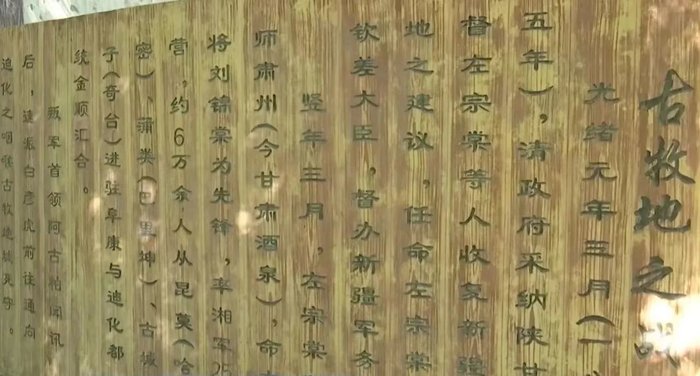 古牧地之战
光绪元年三月(一八
五年)，清政府采纳陕甘
督左宗棠等人收复新疆
地之建议，任命左宗棠
钦差大臣，督办新疆军务
翌年三月，左宗棠
师肃州(今甘肃酒泉)，命
将刘锦棠为先锋，率湘军25
营，约6万余人从昆莫(哈
密)、蒲类(巴里坤)、古城
子(奇台)进驻阜康与迪化都
统金顺汇合。
叛军首领阿古柏闻讯
后，速派白彦虎前往通向
迪化之咽喉古牧地城死守。